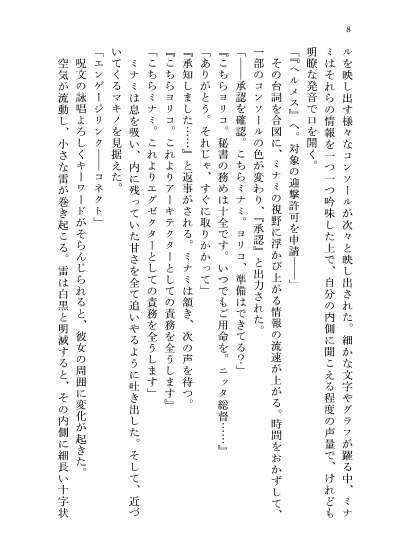 8
ルを映し出す様々なコンソールが次々と映し出された。細かな文字やグラフが躍る中、ミナ
ミはそれらの情報を一つ一つ吟味した上で、自分の内側に聞こえる程度の声量で、けれども
明瞭な発音で口を開く。
「『ヘルメス』へ。対象の迎撃許可を申請――」
その台詞を合図に、ミナミの視野に浮かび上がる情報の流速が上がる。時間をおかずして、
一部のコンソールの色が変わり、『承認』と出力された。
「――承認を確認。こちらミナミ。ヨリコ、準備はできてる？」
『こちらヨリコ。秘書の務めは十全です。いつでもご用命を。ニッタ総督……』
「ありがとう。それじゃ、すぐに取りかかって」
『承知しました……』と返事がされる。ミナミは頷き、次の声を待つ。
『こちらヨリコ。これよりアーキテクターとしての責務を全うします』
「こちらミナミ。これよりエグゼクターとしての責務を全うします」
ミナミは息を吸い、内に残っていた甘さを全て追いやるように吐き出した。そして、近づ
いてくるマキノを見据えた。
「エンゲージリンク――コネクト」
呪文の詠唱よろしくキーワードがそらんじられると、彼女の周囲に変化が起きた。
空気が流動し、小さな雷が巻き起こる。雷は白黒と明滅すると、その内側に細長い十字状